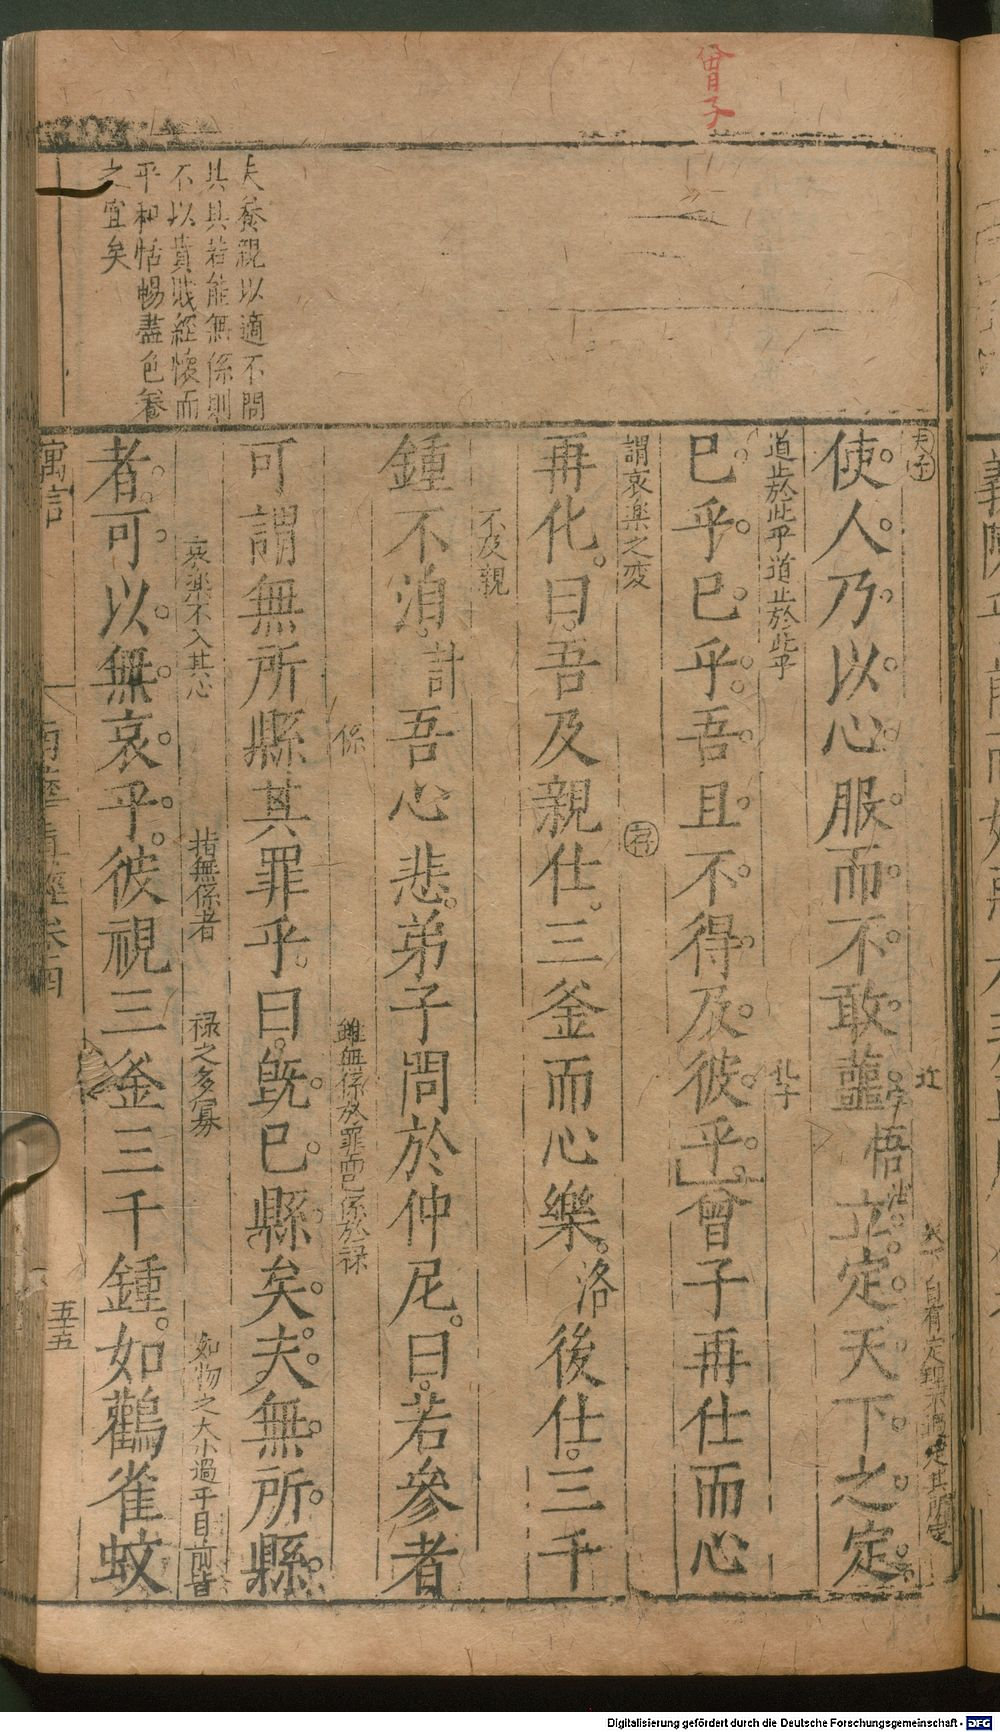 曾子
夫養親以適不問
其具若能無係則
不以貴賤經懷而
平和恬暢盡色養
之宜矣
夫子
使人乃以心服而不敢蘁立定天下之定
悟
道止於此乎道止於此乎
孔子
已乎已乎吾且不得及彼乎曾子再仕而心
謂哀楽之変
存
再化曰吾及親仕三釜而心樂洛後仕三千
不及親
鍾不洎計吾心悲弟子問於仲尼曰若參者
係
雖無係於罪而已係於祿
可謂無所縣其罪乎曰旣已縣矣夫無所縣
哀楽不入其心
指無係者
祿之多寡
如物之大小過乎目前者
者可以無哀乎彼視三釜三千鍾如鸛雀蚊
寓言
南華真經卷四
五五
Digitalisierung gefördert durch die Deutsche Forschungsgemeinschaft - DFG